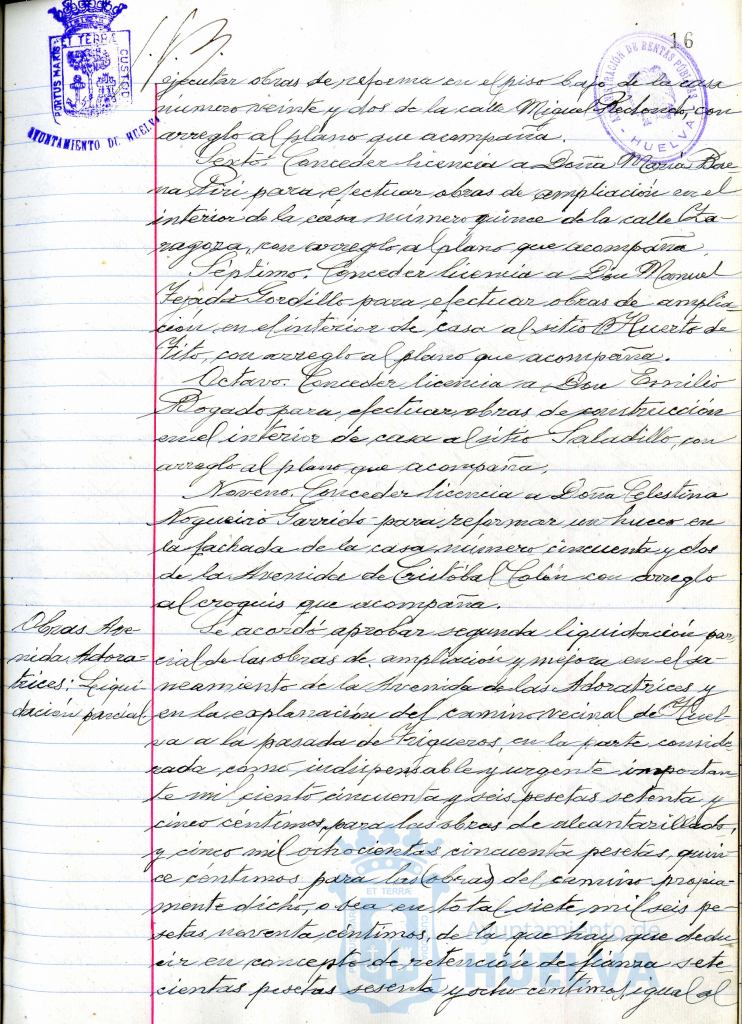 16
PORTUS MARIS ET TERRÆ CUSTODI
AYUNTAMIENTO DE HUELVA
ADMINISTRACION DE RENTAS PUBLICAS
- HUELVA -
ejecutar obras de reforma en el piso bajo de la casa
numero veinte y dos de la calle Miguel Redondo, con
arreglo al plano que acompaña.
Sexto: Conceder licencia a Doña María Bae
na Piri para efectuar obras de ampliación en el
interior de la casa número quince de la calle Za-
ragoza, con arreglo al plano que acompaña.
Séptimo. Conceder licencia a Don Manuel
Tejada Gordillo para efectuar obras de amplia-
ción en el interior de casa al sitio Huerto de
Tito, con arreglo al plano que acompaña.
Octavo. Conceder licencia a Don Emilio
Bogado para efectuar obras de construcción
en el interior de casa al sitio Saladillo, con
arreglo al plano que acompaña.
Noveno. Conceder licencia a Doña Celestina
Nogueiro Garrido para reformar un hueco en
la fachada de la casa número cincuenta y dos
de la Avenida de Cristóbal Colón con arreglo
al croquis que acompaña.
Obras Ave-
nida Adora-
trices: Liqui-
dación parcial
Se acordó aprobar segunda liquidación par-
cial de las obras de ampliación y mejora en el sa-
neamiento de la Avenida de las Adoratrices y
en la explanación del camino vecinal de Huel-
va a la pasada de Trigueros, en la parte conside-
rada como indispensable y urgente importan
te mil ciento cincuenta y seis pesetas setenta y
cinco céntimos para las obras de alcantarillado,
y cinco mil ochocientas cincuenta pesetas, quin-
ce centimos para las (obras) del camino propia-
mente dicho, o sea en total siete mil seis pe-
setas noventa céntimos, de la que hay que dedu-
cir en concepto de retención de fianza sete-
cientas pesetas sesenta y ocho centimos, igual al
ET TERRÆ
Ayuntamiento de
HUELVA